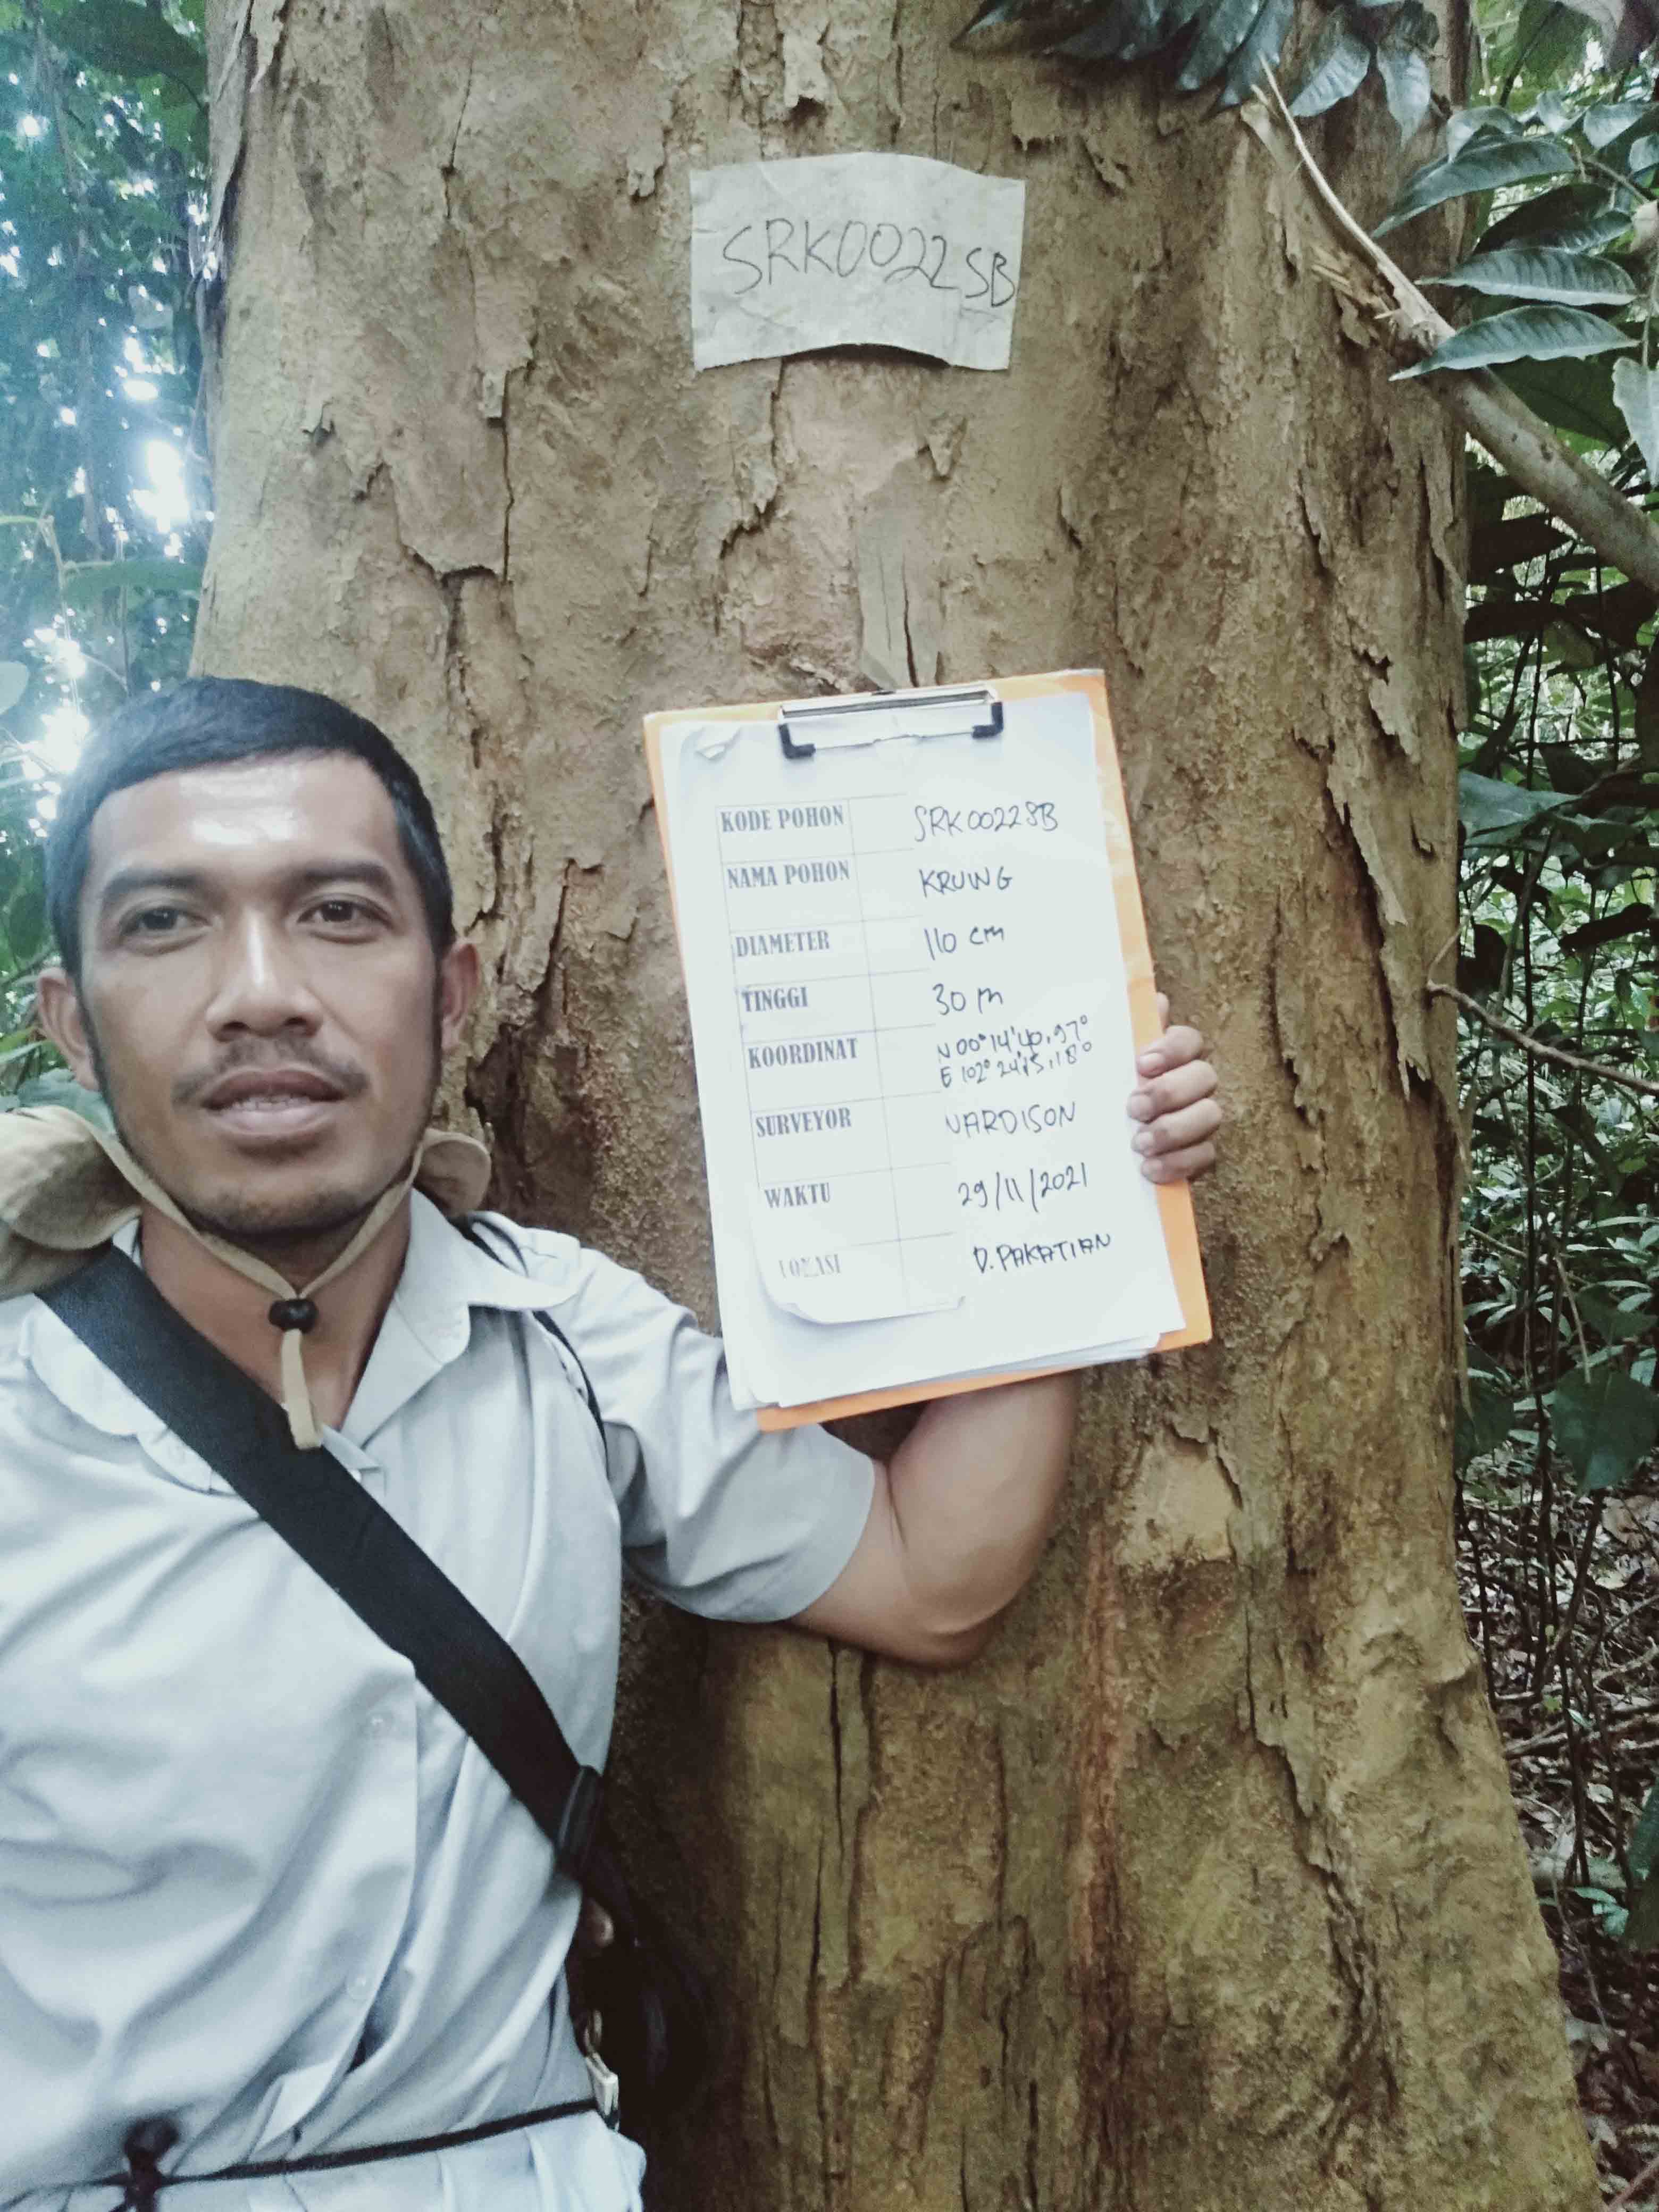 SRK0022SB
KODE POHON SRK0022SB
NAMA POHON KRUING
DIAMETER 110 cm
TINGGI 30 m
KOORDINAT N 00° 14' 40,97°
E 102° 24' 15,18°
SURVEYOR NARDISON
WAKTU 29/11/2021
LOKASI D. PAKATIAN